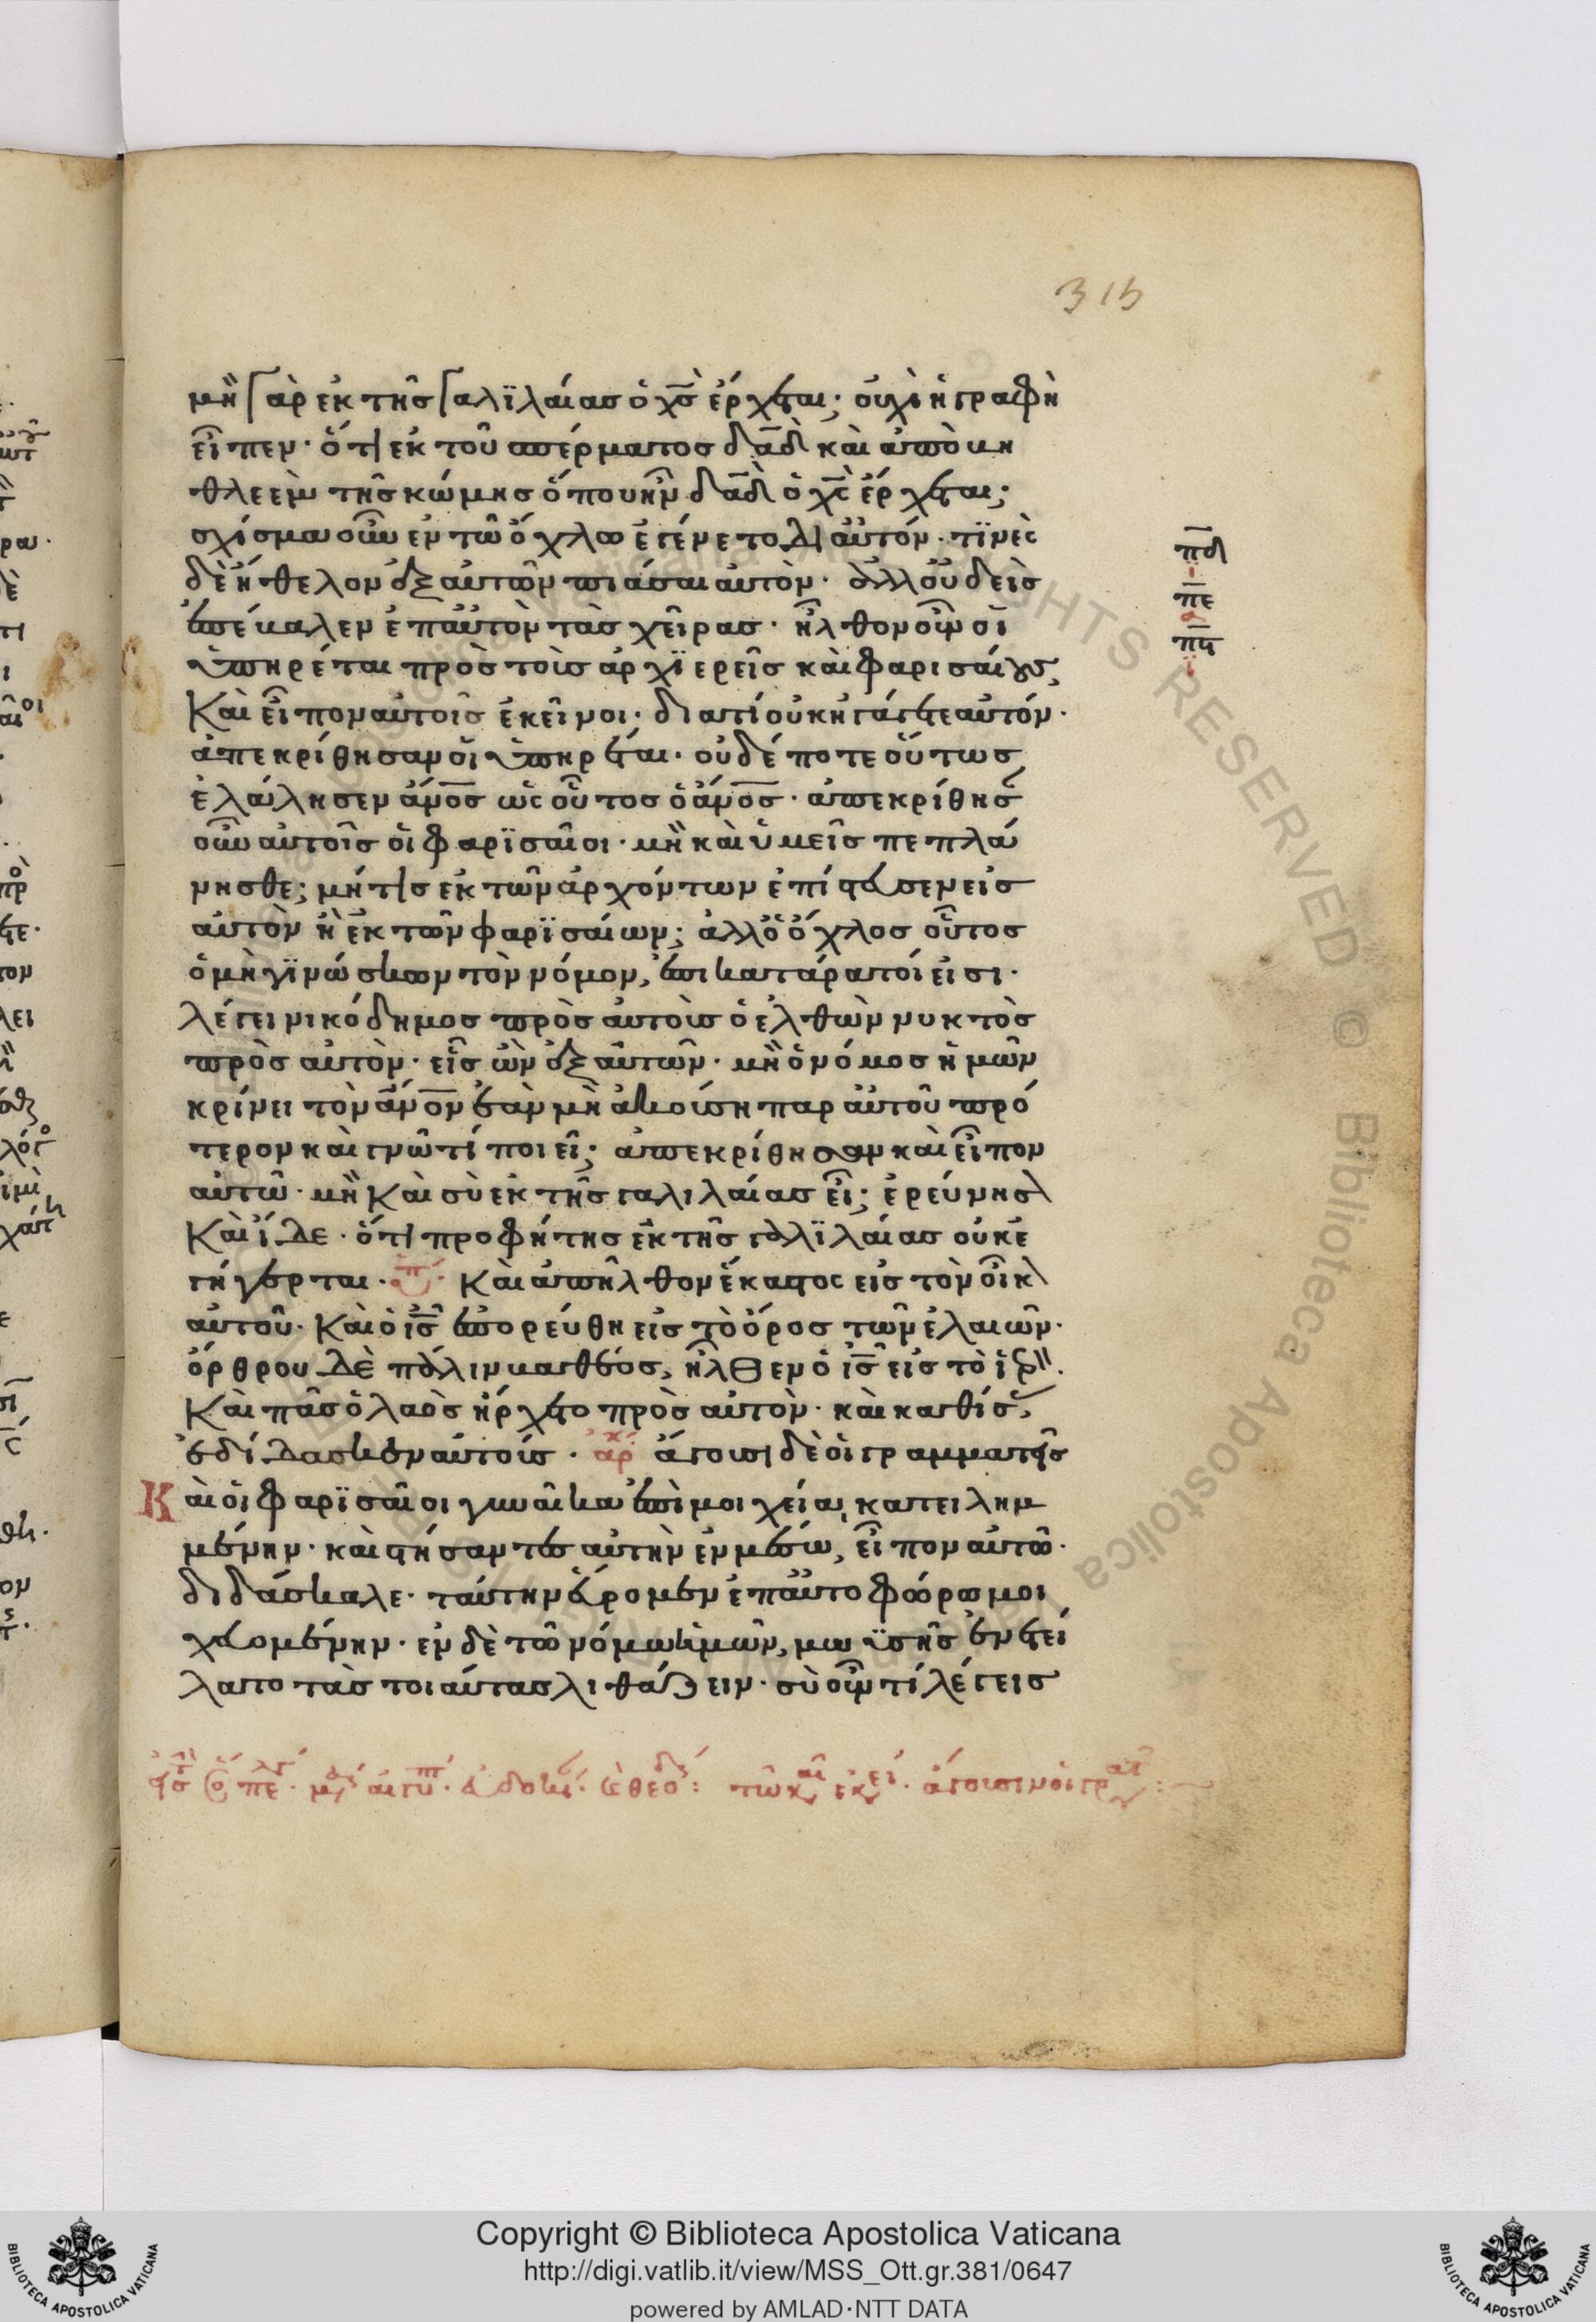 315
μὴ γὰρ ἐκ τῆς γαλϊλαίας ὁ χ̅ς̅ ἔρχεται; οὐχὶ ἡ γραφὴ
εἶπεν· ὅτι ἐκ τοῦ σπέρματος δα̅δ̅ καὶ ἀπὸ βη
θλεὲμ τῆς κώμης ὅπου ἦν δα̅δ̅ ὁ χ̅ς̅ ἔρχεται;
σχίσμα οὖν ἐν τῶ ὄχλω ἐγένετο δι αὐτόν· τϊνὲς
δὲ ἤθελον ἐξ αὐτῶν πιάσαι αὐτὸν· ἀλλ οὐδεὶς
ἐπέβαλεν ἐπ αὐτὸν τὰς χεῖρας· ἦλθον οὖν οἱ
ὑπηρέται πρὸς τοὺς ἀρχϊερεῖς καὶ φαρισαίους,
Καὶ εἶπον αὐτοῖς ἐκεῖνοι· διατί οὐκ ἠγάγετε αὐτόν·
ἀπεκρίθησαν οἱ ὑπηρέται· οὐδέποτε οὕτως
ἐλάλησεν ἄν̅ο̅ς̅ ὡς οὗτος ὁ ἄν̅ο̅ς̅· ἀπεκρίθησ
οὖν αὐτοῖς οἱ φαρϊσαῖοι· μὴ καὶ ὑμεῖς πεπλά
νησθε; μή τις ἐκ τῶν ἀρχόντων ἐπίστευσεν εἰς
αὐτὸν ἢ ἐκ τῶν φαρϊσαίων; ἀλλ ὁ ὄχλος οὗτος
ὁ μὴ γϊνώσκων τὸν νόμον, ἐπικατάρατοί εἰσι·
λέγει νικόδημος πρὸς αὐτοὺς ὁ ἐλθὼν νυκτὸς
πρὸς αὐτὸν· εἷς ὢν ἐξ αὐτῶν· μὴ ὁ νόμος ἡμῶν
κρίνει τὸν ἄν̅ο̅ν̅ ἐὰν μὴ ἀκούση παρ αὐτοῦ πρό
τερον καὶ γνῶ τί ποιεῖ; ἀπεκρίθησαν καὶ εἶπον
αὐτῶ· μὴ Καὶ σὺ ἐκ τῆς γαλιλαίας εἶ; ἐρεύνησ
Καὶ ἴδε· ὅτι προφήτης ἐκ τῆς γαλϊλαίας οὐκ ἐ
γήγερται· Καὶ ἀπῆλθον ἕκαστος εἰς τὸν οἶκ
αὐτοῦ· Καὶ ὁ ι̅ς̅ ἐπορεύθη εἰς τὸ ὄρος τῶν ἐλαιῶν·
ὄρθρου δὲ πάλιν βαθέος, ἦλθεν ὁ ι̅ς̅ εἰς τὸ ἱερ·
Καὶ πᾶς ὁ λαὸς ἤρχετο πρὸς αὐτὸν· καὶ καθίσ,
ἐδίδασκεν αὐτούς· ἀρχ ἄγουσι δὲ οἱ γραμματεῖς
Καὶ οἱ φαρϊσαῖοι γυναῖκα ἐπὶ μοιχεία, κατειλημ
μένην· καὶ στήσαντες αὐτὴν ἐν μέσω, εἶπον αὐτῶ·
διδάσκαλε· ταύτην εὕρομεν ἐπ αὐτοφόρω μοι
χευομένην· ἐν δὲ τῶ νόμω ἡμῶν, μωϋσῆς ἐνετεί
λατο τὰς τοιαύτας λιθάζειν· σὺ οὖν τί λέγεις
π̅δ̅
π̅ε̅
π̅ϛ̅